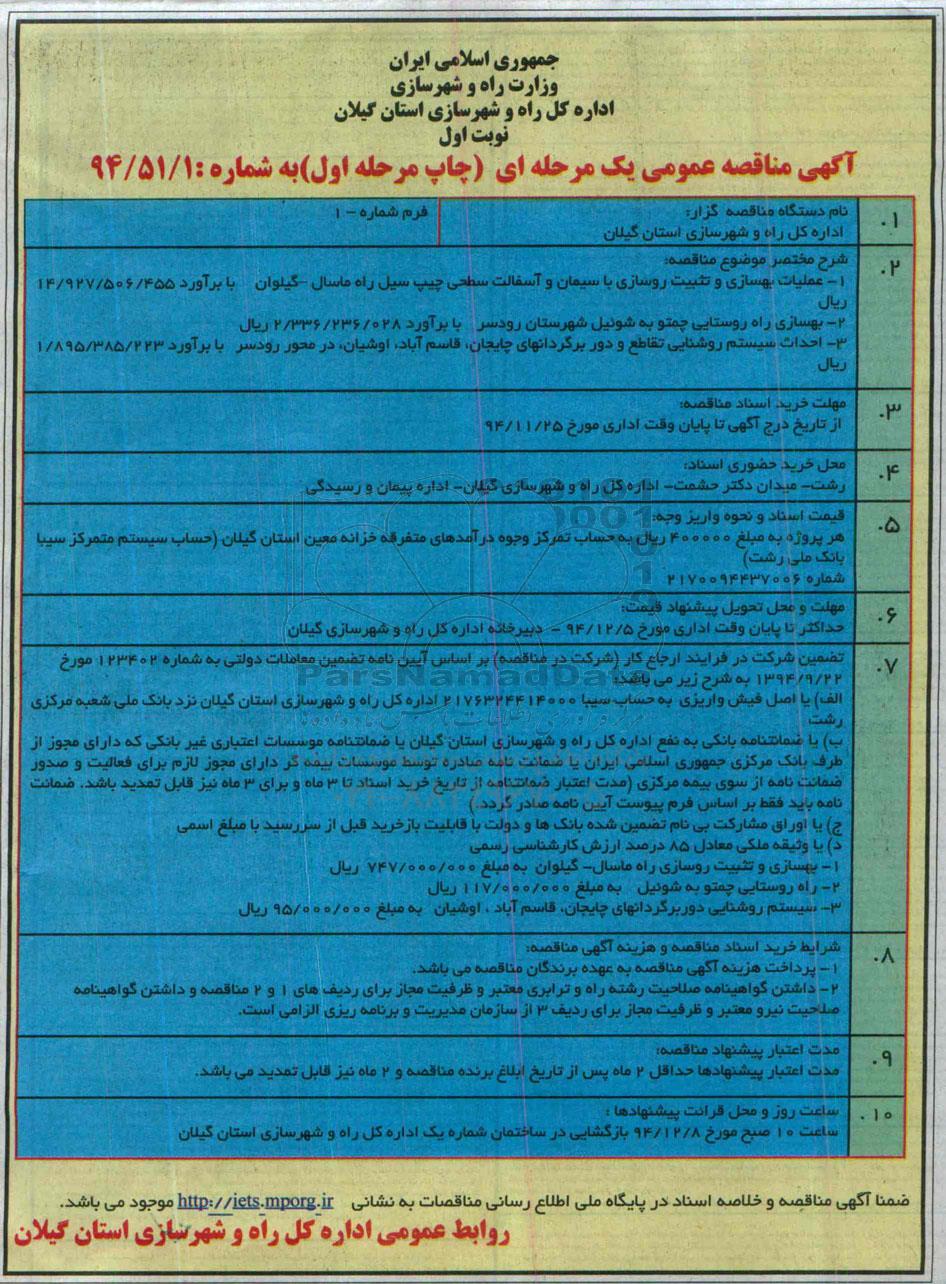 جمهوری اسلامی ایران
وزارت راه و شهرسازی
اداره کل راه و شهرسازی استان گیلان
نوبت اول
آگهی مناقصه عمومی یک مرحله ای (چاپ مرحله اول)به شماره :۹۴/۵۱/۱
۰۱ نام دستگاه مناقصه گزار: فرم شماره – ۱
اداره کل راه و شهرسازی استان گیلان
۰۲ شرح مختصر موضوع مناقصه:
۱– عملیات بهسازی و تثبیت روسازی با سیمان و آسفالت سطحی چیپ سیل راه ماسال –گیلوان با برآورد ۱۴/۹۲۷/۵۰۶/۴۵۵
ریال
۲– بهسازی راه روستایی چمتو به شوئیل شهرستان رودسر با برآورد ۲/۳۳۶/۲۳۶/۰۲۸ ریال
۳– احداث سیستم روشنایی تقاطع و دور برگردانهای چایجان، قاسم آباد، اوشیان، در محور رودسر با برآورد ۱/۸۹۵/۳۸۵/۲۲۳
ریال
۰۳ مهلت خرید اسناد مناقصه:
از تاریخ درج آگهی تا پایان وقت اداری مورخ ۹۴/۱۱/۲۵
۰۴ محل خرید حضوری اسناد:
رشت– میدان دکتر حشمت– اداره کل راه و شهرسازی گیلان– اداره پیمان و رسیدگی
۰۵ قیمت اسناد و نحوه واریز وجه:
هر پروژه به مبلغ ۴۰۰۰۰۰ ریال به حساب تمرکز وجوه درآمدهای متفرقه خزانه معین استان گیلان (حساب سیستم متمرکز سیبا
بانک ملی رشت)
شماره ۲۱۷۰۰۹۴۴۳۷۰۰۶
۰۶ مهلت و محل تحویل پیشنهاد قیمت:
حداکثر تا پایان وقت اداری مورخ ۹۴/۱۲/۵ – دبیرخانه اداره کل راه و شهرسازی گیلان
۰۷ تضمین شرکت در فرایند ارجاع کار (شرکت در مناقصه) بر اساس آیین نامه تضمین معاملات دولتی به شماره ۱۲۳۴۰۲ مورخ
۱۳۹۴/۹/۲۲ به شرح زیر می باشد:
الف) یا اصل فیش واریزی به حساب سیبا ۲۱۷۶۳۲۴۴۱۴۰۰۰ اداره کل راه و شهرسازی استان گیلان نزد بانک ملی شعبه مرکزی
رشت
ب) یا ضمانتنامه بانکی به نفع اداره کل راه و شهرسازی استان گیلان یا ضمانتنامه موسسات اعتباری غیر بانکی که دارای مجوز از
طرف بانک مرکزی جمهوری اسلامی ایران یا ضمانت نامه صادره توسط موسسات بیمه گر دارای مجوز لازم برای فعالیت و صدور
ضمانت نامه از سوی بیمه مرکزی (مدت اعتبار ضمانتنامه از تاریخ خرید اسناد تا ۳ ماه و برای ۳ ماه نیز قابل تمدید باشد. ضمانت
نامه باید فقط بر اساس فرم پیوست آیین نامه صادر گردد.)
ج) یا اوراق مشارکت بی نام تضمین شده بانک ها و دولت با قابلیت بازخرید قبل از سررسید با مبلغ اسمی
د) یا وثیقه ملکی معادل ۸۵ درصد ارزش کارشناسی رسمی
۱– بهسازی و تثبیت روسازی راه ماسال– گیلوان به مبلغ ۷۴۷/۰۰۰/۰۰۰ ریال
۲– راه روستایی چمتو به شوئیل به مبلغ ۱۱۷/۰۰۰/۰۰۰ ریال
۳– سیستم روشنایی دوربرگردانهای چایجان، قاسم آباد ، اوشیان به مبلغ ۹۵/۰۰۰/۰۰۰ ریال
۰۸ شرایط خرید اسناد مناقصه و هزینه آگهی مناقصه:
۱– پرداخت هزینه آگهی مناقصه به عهده برندگان مناقصه می باشد.
۲– داشتن گواهینامه صلاحیت رشته راه و ترابری معتبر و ظرفیت مجاز برای ردیف های ۱ و ۲ مناقصه و داشتن گواهینامه
صلاحیت نیرو معتبر و ظرفیت مجاز برای ردیف ۳ از سازمان مدیریت و برنامه ریزی الزامی است.
۰۹ مدت اعتبار پیشنهاد مناقصه:
مدت اعتبار پیشنهادها حداقل ۲ ماه پس از تاریخ ابلاغ برنده مناقصه و ۲ ماه نیز قابل تمدید می باشد.
۰۱۰ ساعت روز و محل قرائت پیشنهادها :
ساعت ۱۰ صبح مورخ ۹۴/۱۲/۸ بازگشایی در ساختمان شماره یک اداره کل راه و شهرسازی استان گیلان
ضمنا آگهی مناقصه و خلاصه اسناد در پایگاه ملی اطلاع رسانی مناقصات به نشانی http://iets.mporg.ir موجود می باشد.
روابط عمومی اداره کل راه و شهرسازی استان گیلان
ParsNamadData